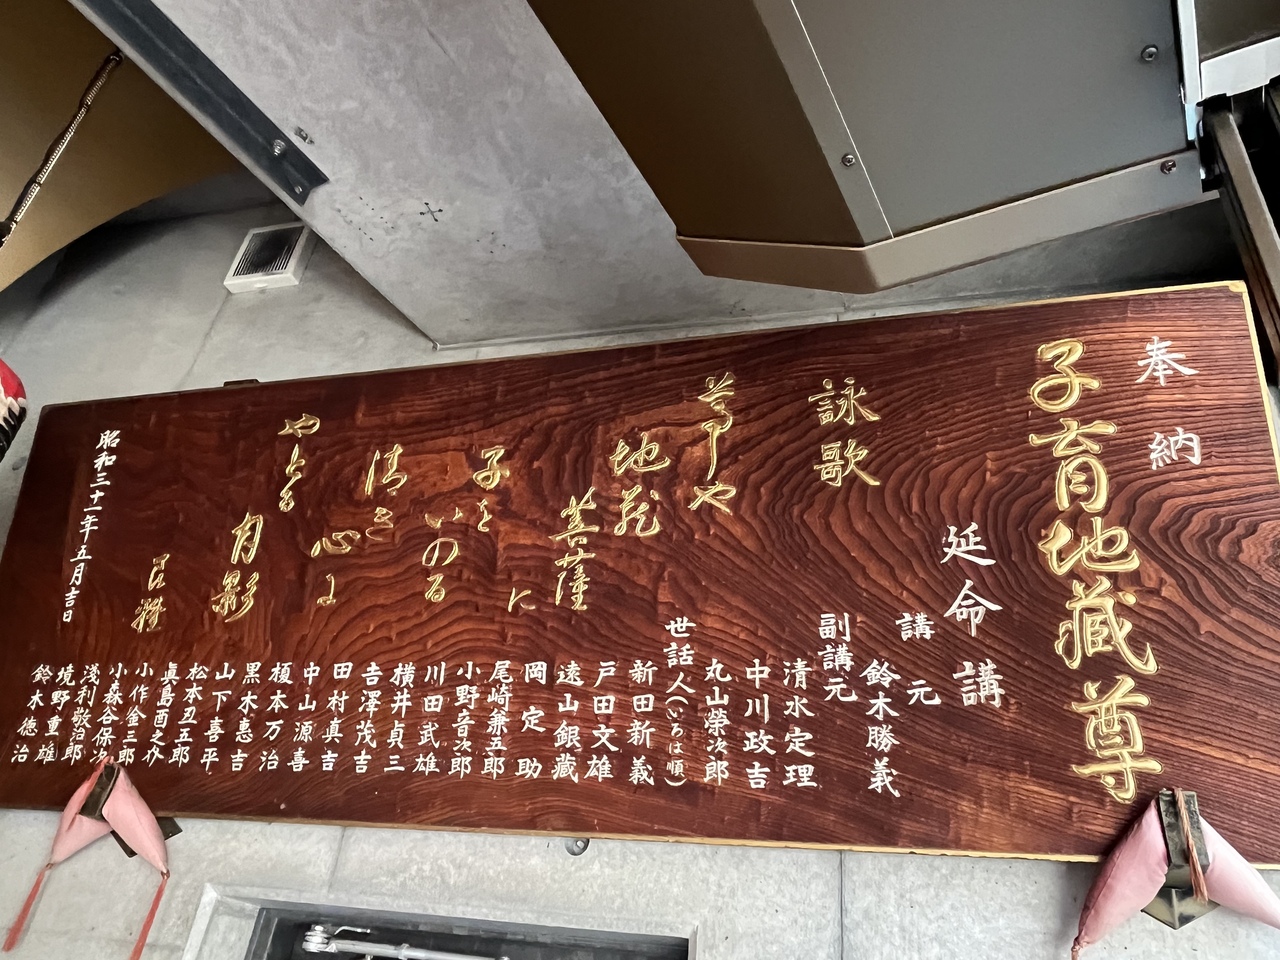 奉納
子育地蔵尊
延命講
講元
鈴木勝義
副講元
清水定理
中川政吉
丸山榮次郎
世話人(いろは順)
新田新義
戸田文雄
遠山銀藏
岡定助
尾崎兼五郎
小野音次郎
川田武雄
横井貞三
吉澤茂吉
田村真吉
中山源喜
榎本万治
黒木惠吉
山下喜平
松本丑五郎
眞島酉之介
小作金三郎
小森谷保次
淺利敬治郎
境野重雄
鈴木徳治
詠歌
尊や
地蔵
菩薩に
子を
いのる
清き
心に
やどる
月影
昭和三十一年五月吉日